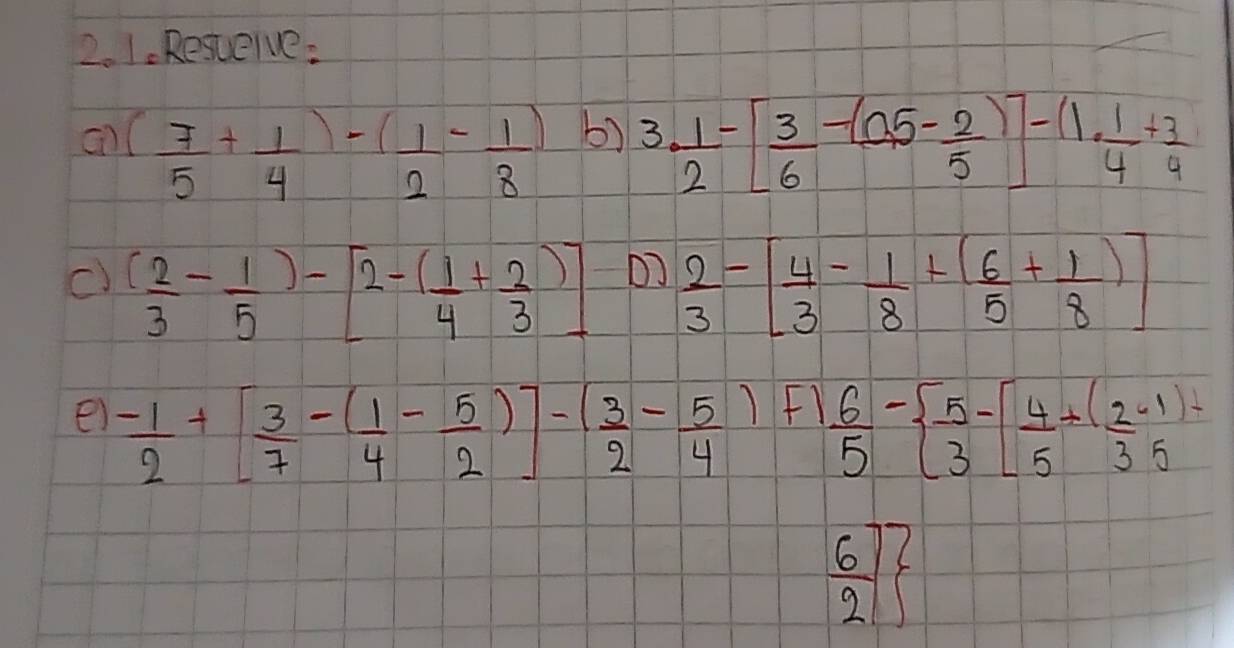 2.1. Resuelve:
a) (7/5 + 1/4) - (1/2 - 1/8) b) 3.1/2 - [3/6 - (0,5 - 2/5)] - (1.1/4 + 3/4
c) (2/3 - 1/5) - [2 - (1/4 + 2/3)] D) 2/3 - [4/3 - 1/8 + (6/5 + 1/8)]
e) -1/2 + [3/7 - (1/4 - 5/2)] - (3/2 - 5/4) F) 6/5 - {5/3 - [4/5 + (2/3 - 1/5) +
6/2]}